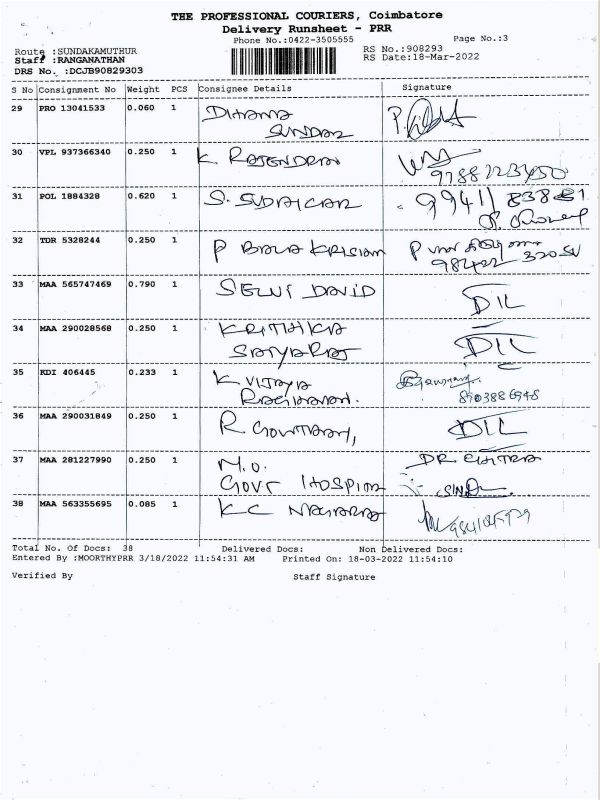 THE PROFESSIONAL COURIERS, Coimbatore
Delivery Runsheet - PRR
Phone No.:0422-3505555
Page No.:3
Route :SUNDAKAMUTHUR
RS No.:908293
Staff :RANGANATHAN
RS Date:18-Mar-2022
DRS No. :DCJB90829303
S No Consignment No Weight PCS Consignee Details Signature
29 PRO 13041533 0.060 1 DHANA
SUNDAR
30 VPL 937366340 0.250 1 K RAJENDRAN
9788123450
31 POL 1884328 0.620 1 S. SUDAICAR 99411 83881
32 TDR 5328244 0.250 1 P BALA KRISIAN P
98422 320
33 MAA 565747469 0.790 1 SELVI DAVID DIL
34 MAA 290028568 0.250 1 KRITHIKA
SATYARAJ DIL
35 KDI 406445 0.233 1 K VIJAYA
RAGHAVAN. 8903886948
36 MAA 290031849 0.250 1 R GOWTHAM, DIL
37 MAA 281227990 0.250 1 M.O. DR CHITRA
GOVT HOSPITA
38 MAA 563355695 0.085 1 K C NAGARAJ
Total No. Of Docs: 38 Delivered Docs: Non Delivered Docs:
Entered By :MOORTHYPRR 3/18/2022 11:54:31 AM Printed On: 18-03-2022 11:54:10
Verified By Staff Signature